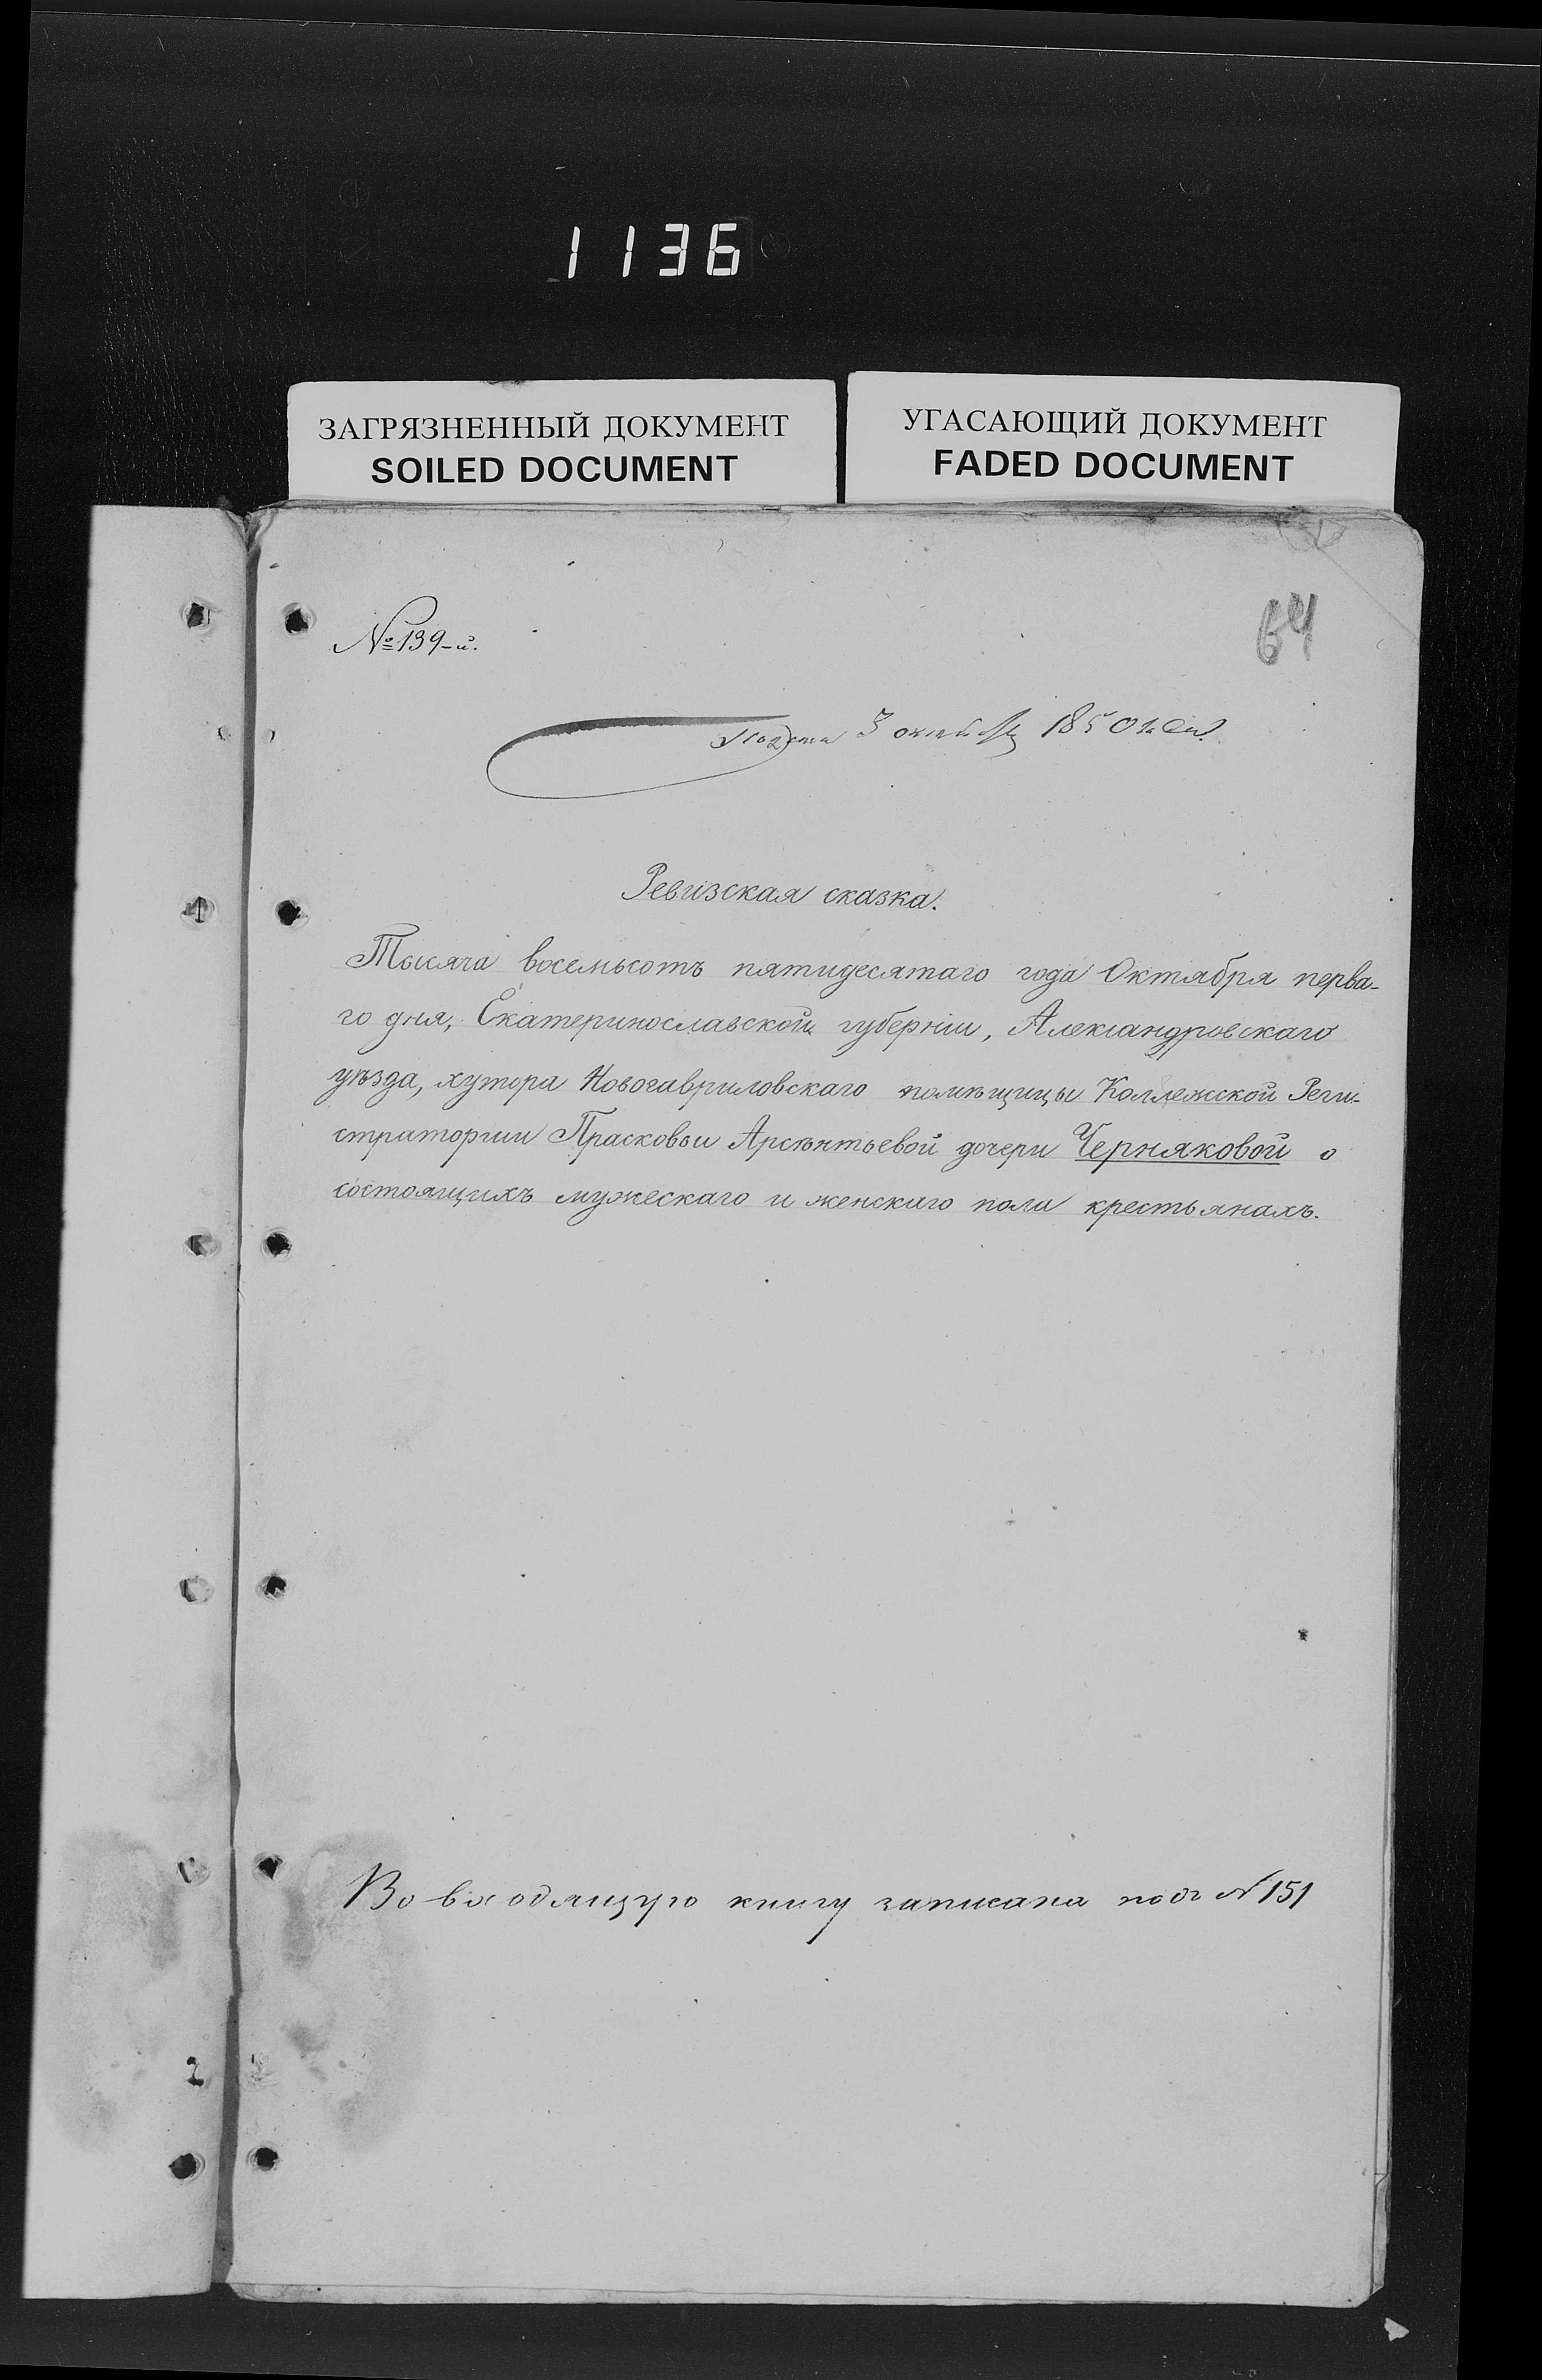 1136
ЗАГРЯЗНЕННЫЙ ДОКУМЕНТ
SOILED DOCUMENT
УГАСАЮЩИЙ ДОКУМЕНТ
FADED DOCUMENT
№139-й.
64
3 октября 1850 года
Ревизская сказка.
Тысяча восемьсотъ пятидесятаго года Октября перва-
го дня, Екатеринославской губерніи, Александровскаго
уѣзда, хутора Новогавриловскаго помѣщицы Коллежской Реги-
страторши Прасковьи Арсѣнтьевой дочери Черняковой о
состоящихъ мужескаго и женскаго пола крестьянахъ.
Во входящую книгу записана подъ №151